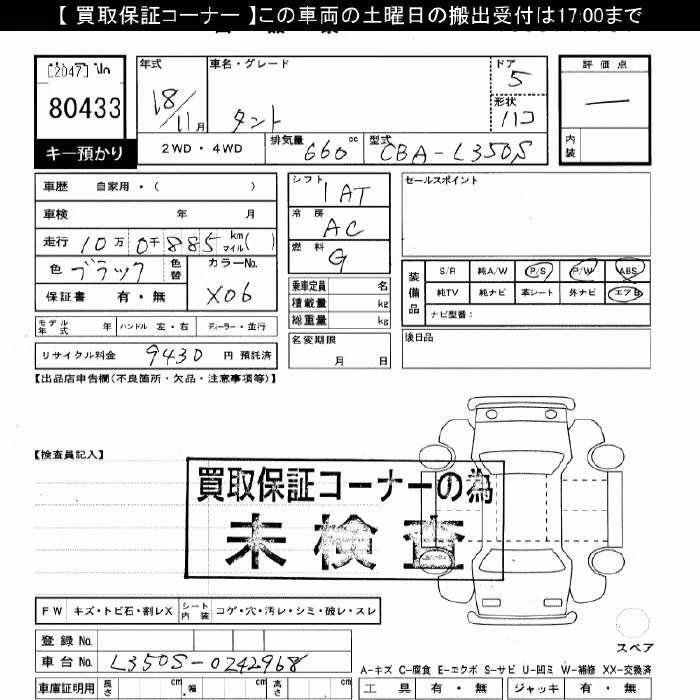 【 買取保証コーナー 】この車両の土曜日の搬出受付は17:00まで
[2047]
80433
キー預かり
年式
18/11月
車名・グレード
タント
ドア
5
形状
ハコ
2WD・4WD
排気量 660 cc
型式 CBA-L350S
評価点
―
内装
車歴 自家用・( )
車検 年 月
走行 10万 0千 885 km マイル( )
色 ブラック 色替
カラーNo.
X06
保証書 有・無
モデル年式 年 ハンドル 左・右 ディーラー・並行
リサイクル料金 9430 円 預託済
シフト 1AT
冷房 AC
燃料 G
乗車定員 名
積載量 kg
総重量 kg
名変期限
月 日
セールスポイント
装備品
S/R 純A/W P/S P/W ABS
純TV 純ナビ 革シート 外ナビ エアB
ナビ型番:
後日品
【出品店申告欄(不良箇所・欠品・注意事項等)】
【検査員記入】
買取保証コーナーの為
未検査
FW キズ・トビ石・割レX シート内装 コゲ・穴・汚レ・シミ・破レ・スレ
登録 No.
車台 No. L350S-0242968
車庫証明用 長さ cm 幅 cm 高さ cm
スペア
A-キズ C-腐食 E-エクボ S-サビ U-凹ミ W-補修 XX-交換済
工具 有・無 ジャッキ 有・無